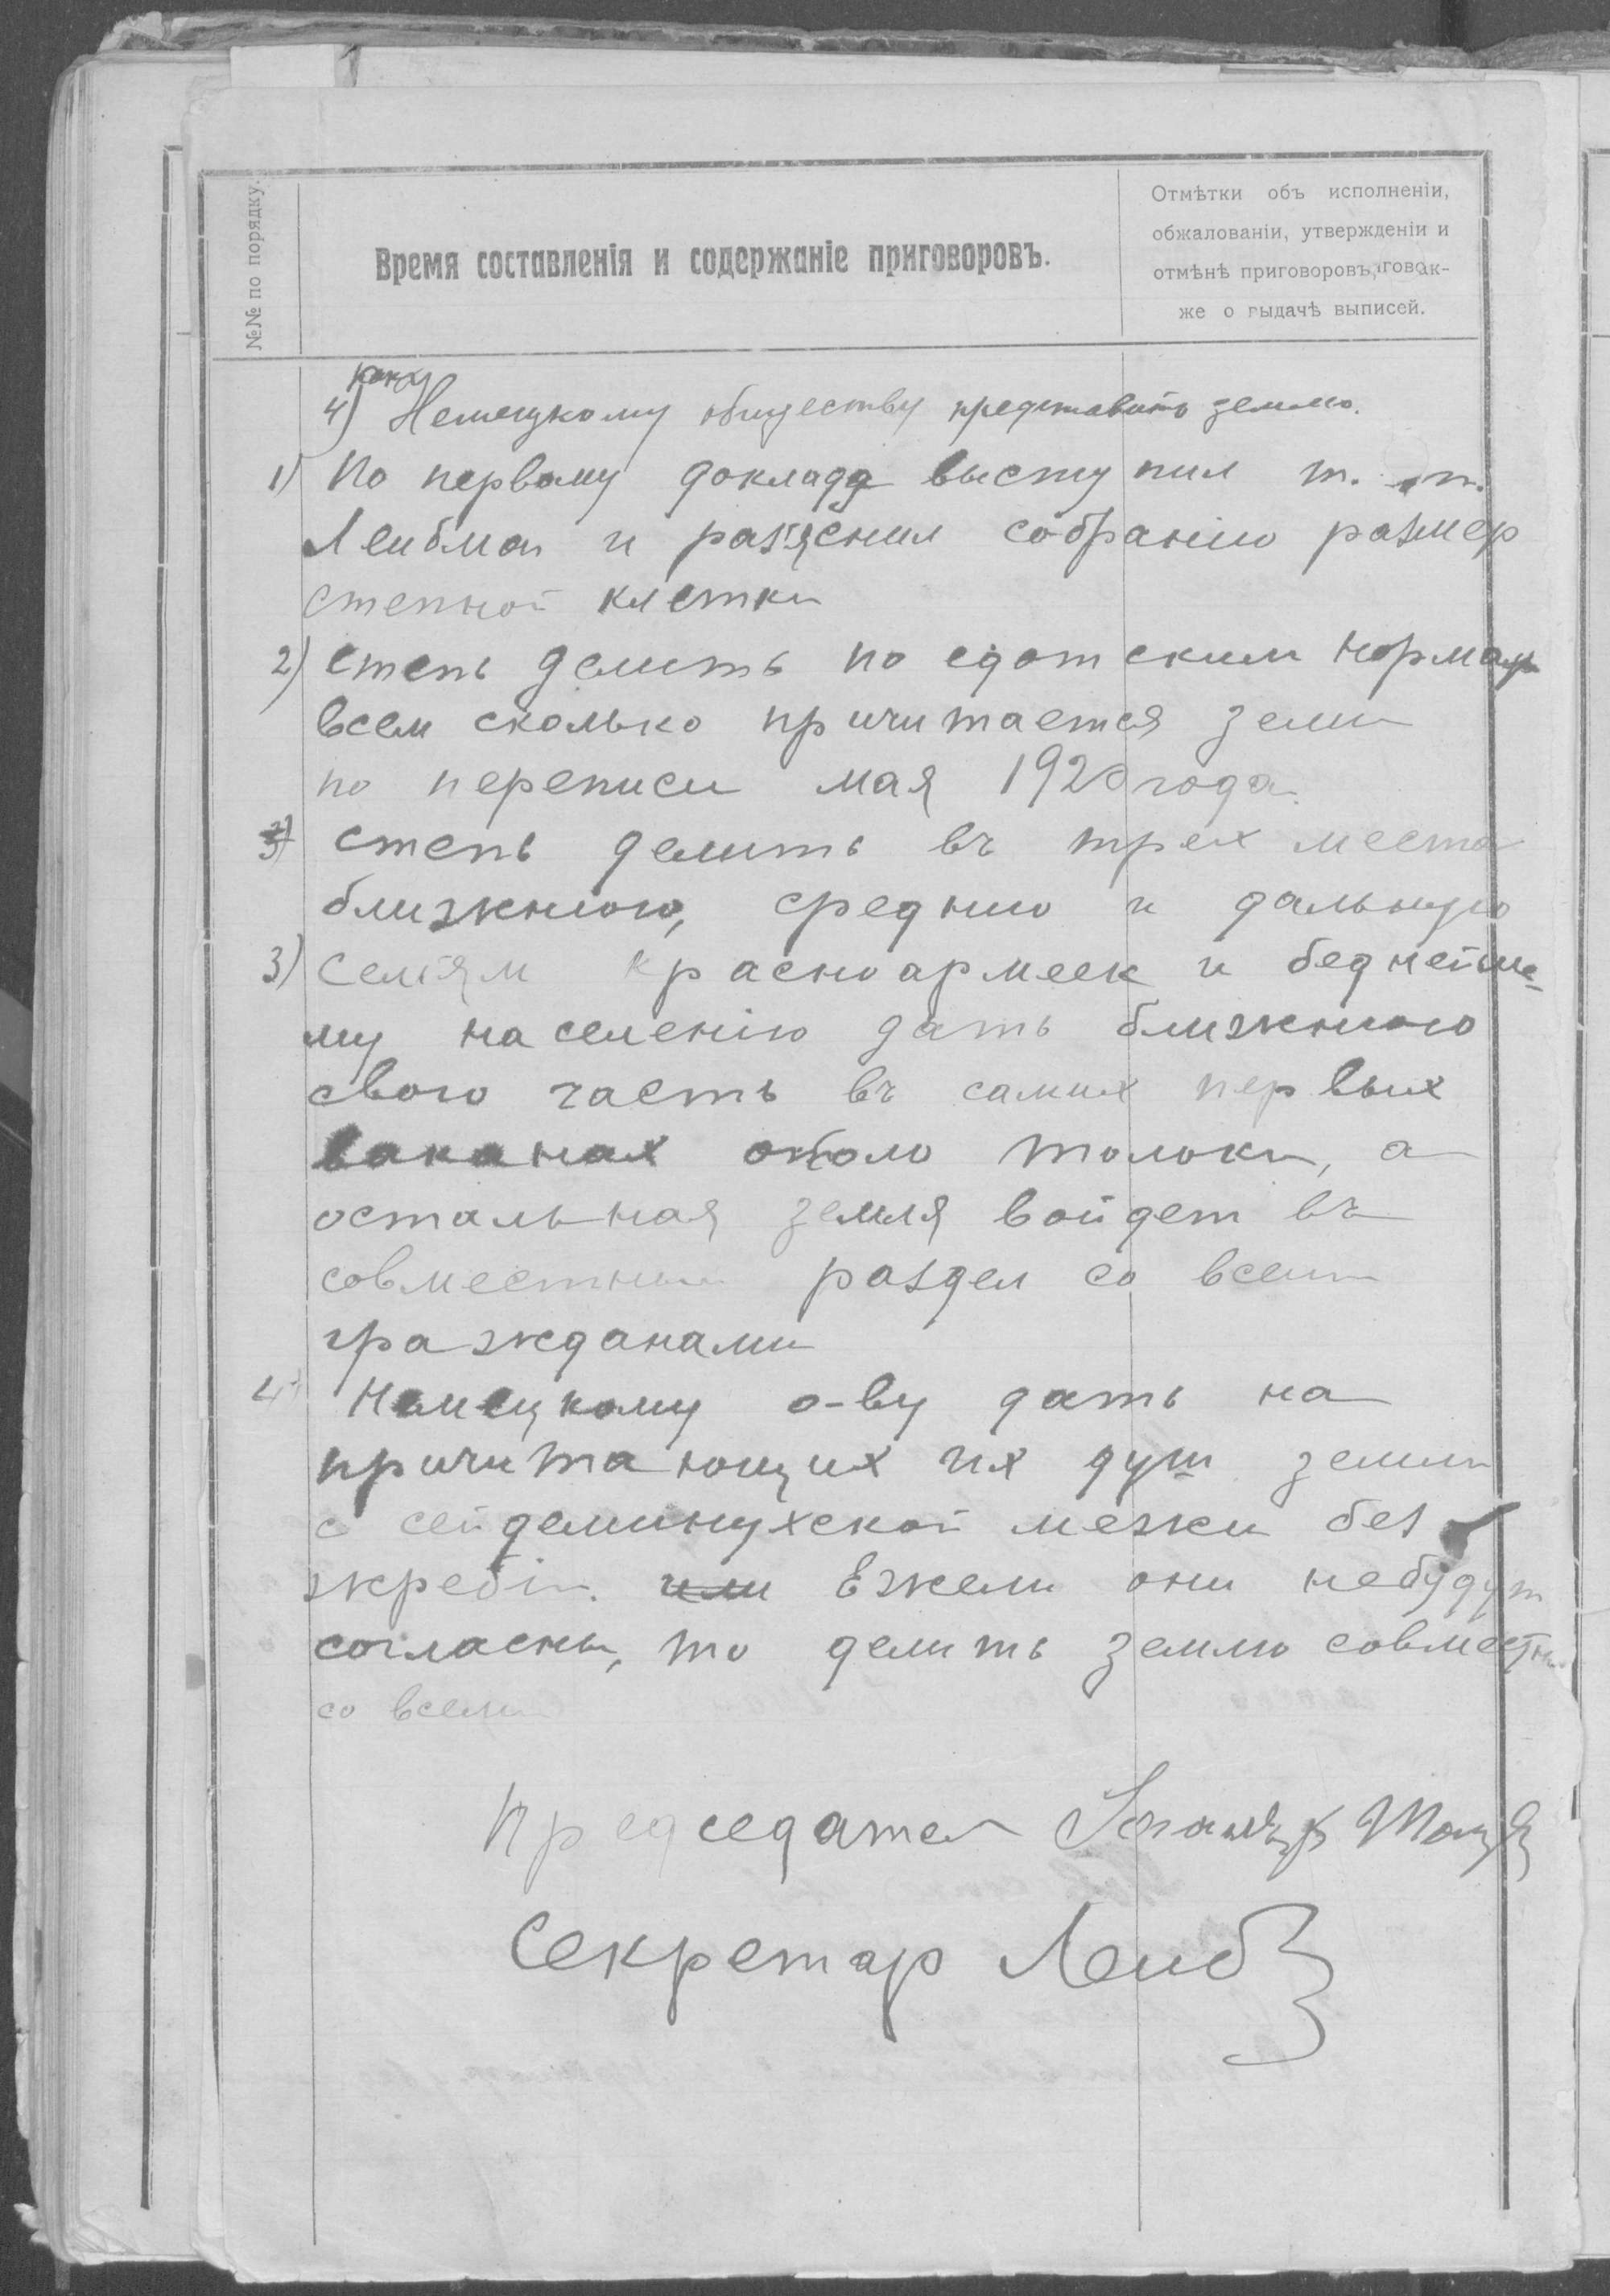 №№ по порядку.
Время составленія и содержаніе приговоровъ.
Отмѣтки объ исполненіи,
обжалованіи, утвержденіи и
отмѣнѣ приговоровъ, ак-
же о выдачѣ выписей.
4) Немецкому обществу предтавить землю.
1) По первому докладу выступил т.
Лейбман и раз'яснил собранію размер
степной клетки
2) Степь делить по едотским нормам
всем сколько причитается земли
по переписи мая 1920 года.
степь делить въ трех места
ближнюю, среднию и дальную
3) Сем'ям красноармеек и беднейше-
му населенію дать ближнюю
свою часть въ самих первых
около толоки, а
остальная земля войдет въ
совместный раздел со всеми
гражданами
4 Немецкому о-ву дать на
причитающих их душ земли
с сейдеминухской межи без
жребія. или Ежели они небудут
согласны, то делить землю совместно
со всеми
Председател
Секретар Лейб